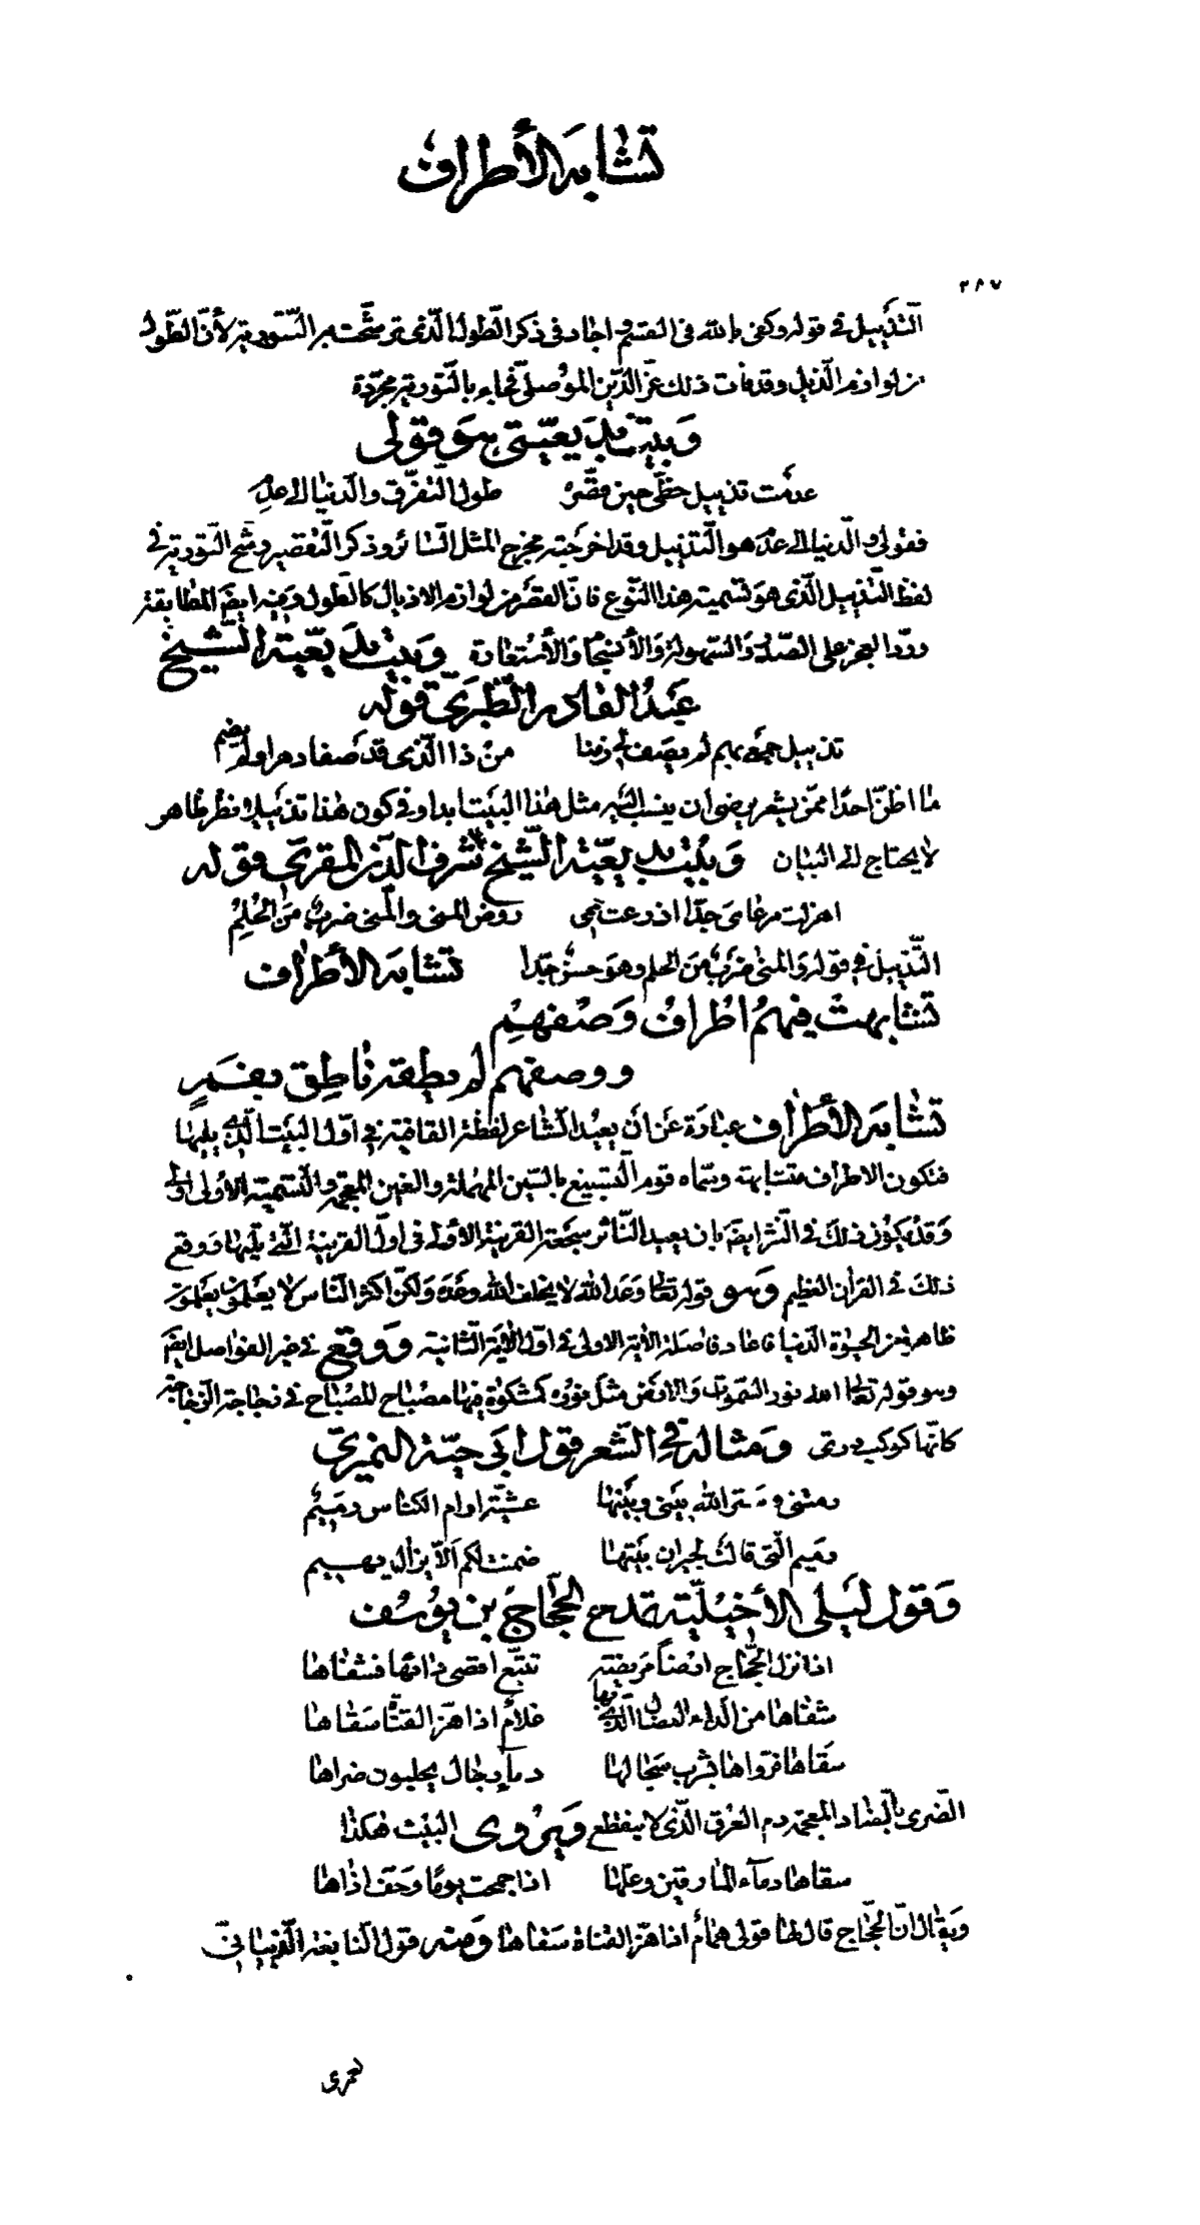 تشابه الأطراف
٢٨٧
التذييل في قوله وكفى بالله في القسم واجاد في ذكر الطول الذي ترشحت به التورية لأن الطول
من لوازم الذيل وقد فات ذلك عز الدين الموصلي فجاء بالتورية مجردة
وبيت بديعيتي هو قولي
عدمت تذييل حظي حين قصره    طول التفرق والدنيا الى عدم
فقولي والدنيا الى عدم هو التذييل وقد اخرجته مخرج المثل السائر وذكر التقصير رشح التورية في
لفظ التذييل الذي هو تسمية هذا النوع فان القصر من لوازم الاذيال كالطول وفيه ايضا المطابقة
وردّ العجز على الصدر والسهولة والأنسجام والأستعارة وبيت بديعية الشيخ
عبد القادر الطبري قوله
تذييل جمعهم لم يصف لي زمنا    من ذا الذي قد صفا دهرا ولم يضم
ما اظن احدا ممن يشعر يرضى ان ينسب اليه مثل هذا البيت ابدا وفي كون هذا تذييلا نظر ظاهر
لا يحتاج الى البيان وبيت بديعية الشيخ شرف الدين المقري قوله
اهزلت مرعاى جدّا اذ رعت هممي    روض المنى والمنى ضرب من الحلم
التذييل في قوله والمنى ضرب من الحلم وهو حسن جدا    تشابه الأطراف
تشابهت فيهم اطراف وصفهم
ووصفهم لم يطقه ناطق بفم
تشابه الأطراف عبارة عن ان يعيد الشاعر لفظة القافية في اول البيت الذي يليها
فتكون الاطراف متشابهة وسماه قوم التسبيغ بالسين المهملة والغين المعجمة والتسمية الأولى اولى
وقد يكون ذلك في النثر ايضا بان يعيد الناثر سجعة القرينة الأولى في اول القرينة التي يليها ووقع
ذلك في القرآن العظيم وهو قوله تعالى وعد الله لا يخلف الله وعده ولكن اكثر الناس لا يعلمون يعلمون
ظاهرا من الحيوة الدنيا فاعاد فاصلة الاية الاولى في اول الاية الثانية ووقع في غير الفواصل ايضا
وهو قوله تعالى الله نور السموات والارض مثل نوره كمشكوة فيها مصباح المصباح في زجاجة الزجاجة
كانها كوكب درى ومثاله في الشعر قول ابي حية النميري
رمتني وستر الله بيني وبينها    عشية ارام الكناس رميم
رميم التي قالت لجيران بيتها    ضمنت لكم الا يزال يهيم
وقول ليلى الأخيلية تمدح الحجاج بن يوسف
اذا نزل الحجاج ارضا مريضة    تتبع اقصى دائها فشفاها
شفاها من الداء العضال الذي بها    غلام اذا هز القناة سقاها
سقاها فرواها بشرب سجالها    دماء رجال يحلبون ضراها
الضرى بالضاد المعجمة دم العرق الذي لا ينقطع ويروى البيت هكذا
سقاها دماء المارقين وعلها    اذا جمحت يوما وخف اذاها
ويقال ان الحجاج قال لها قولي همام اذا هز القناة سقاها ومنه قول النابغة الذبياني
لعمرى